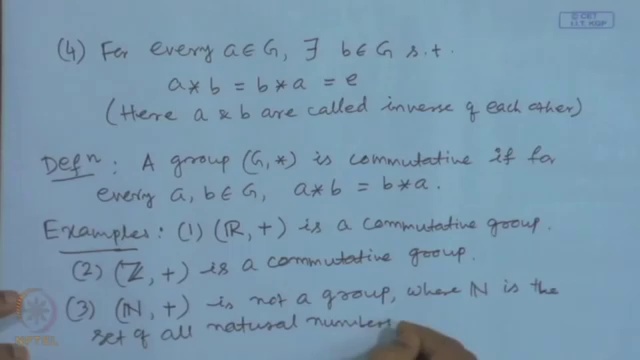 © CET
I.I.T. KGP
(4) For every a ∈ G, ∃ b ∈ G s.t.
a * b = b * a = e
(Here a & b are called inverse of each other)
Defⁿ: A group (G, *) is commutative if for
every a, b ∈ G, a * b = b * a.
Examples: (1) (ℝ, +) is a commutative group.
(2) (ℤ, +) is a commutative group.
(3) (ℕ, +) is not a group, where ℕ is the
set of all natural numbers
NPTEL